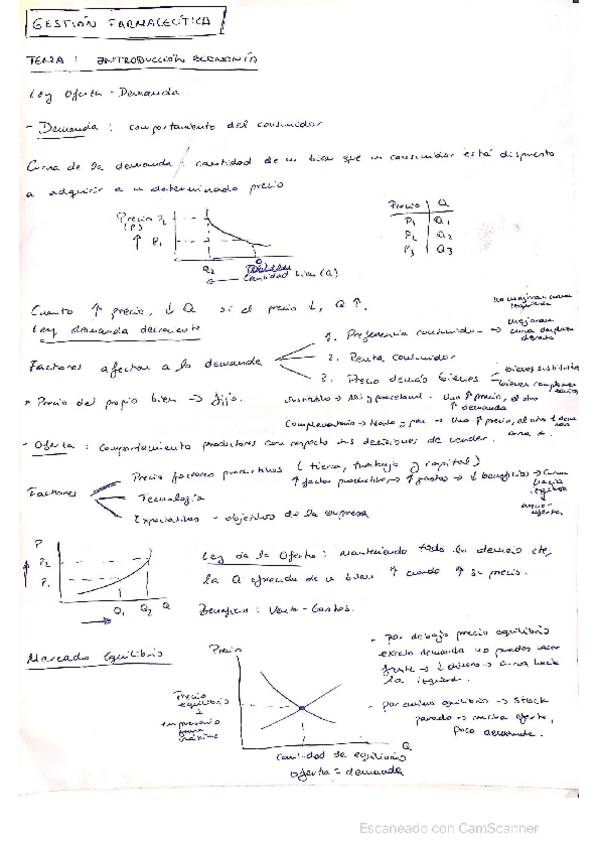 GESTIÓN FARMACEÚTICA
TEMA 1 INTRODUCCIÓN ECONOMÍA
Ley Oferta - Demanda
- Demanda : comportamiento del consumidor
Curva de la demanda : cantidad de un bien que un consumidor está dispuesto
a adquirir a un determinado precio
Precio P2
(P)
↑ P1
Q2
Cantidad bien (Q)
Precio | Q
P1 | Q1
P2 | Q2
P3 | Q3
Cuanto ↑ precio, ↓ Q si el precio ↓, Q ↑.
Ley demanda decreciente
Factores afectan a la demanda
1. Preferencia consumidor →
2. Renta consumidor
3. Precio demás bienes
bienes sustitutivos
* Precio del propio bien → fijo.
Sustitutivo → y paracetamol. Uno ↑ precio, el otro
↑ demanda
Complementario → y pan → Uno ↑ precio, el otro ↓
- Oferta : comportamiento productores con respecto sus decisiones de vender.
Factores
Precio factores productivos (tierra, trabajo y capital)
↑ factor productivo → ↑ gastos → ↓ beneficios → Curva
hacia
izquierda
Tecnología
Expectativas - objetivos de la empresa
P
P2
P1
Q1 Q2 Q
Ley de la Oferta : manteniendo todo lo demás cte,
la Q ofrecida de un bien ↑ cuando ↑ su precio.
Beneficio = Venta - Gastos.
Mercado Equilibrio
Precio
Precio
equilibrio
Q
Cantidad de equilibrio
oferta = demanda
- por debajo precio equilibrio
exceso demanda no puedes hacer
frente → ↓ dinero → Curva hacia
la izquierda.
- por encima equilibrio → Stock
parado → mucha oferta,
poca demanda.
Escaneado con CamScanner